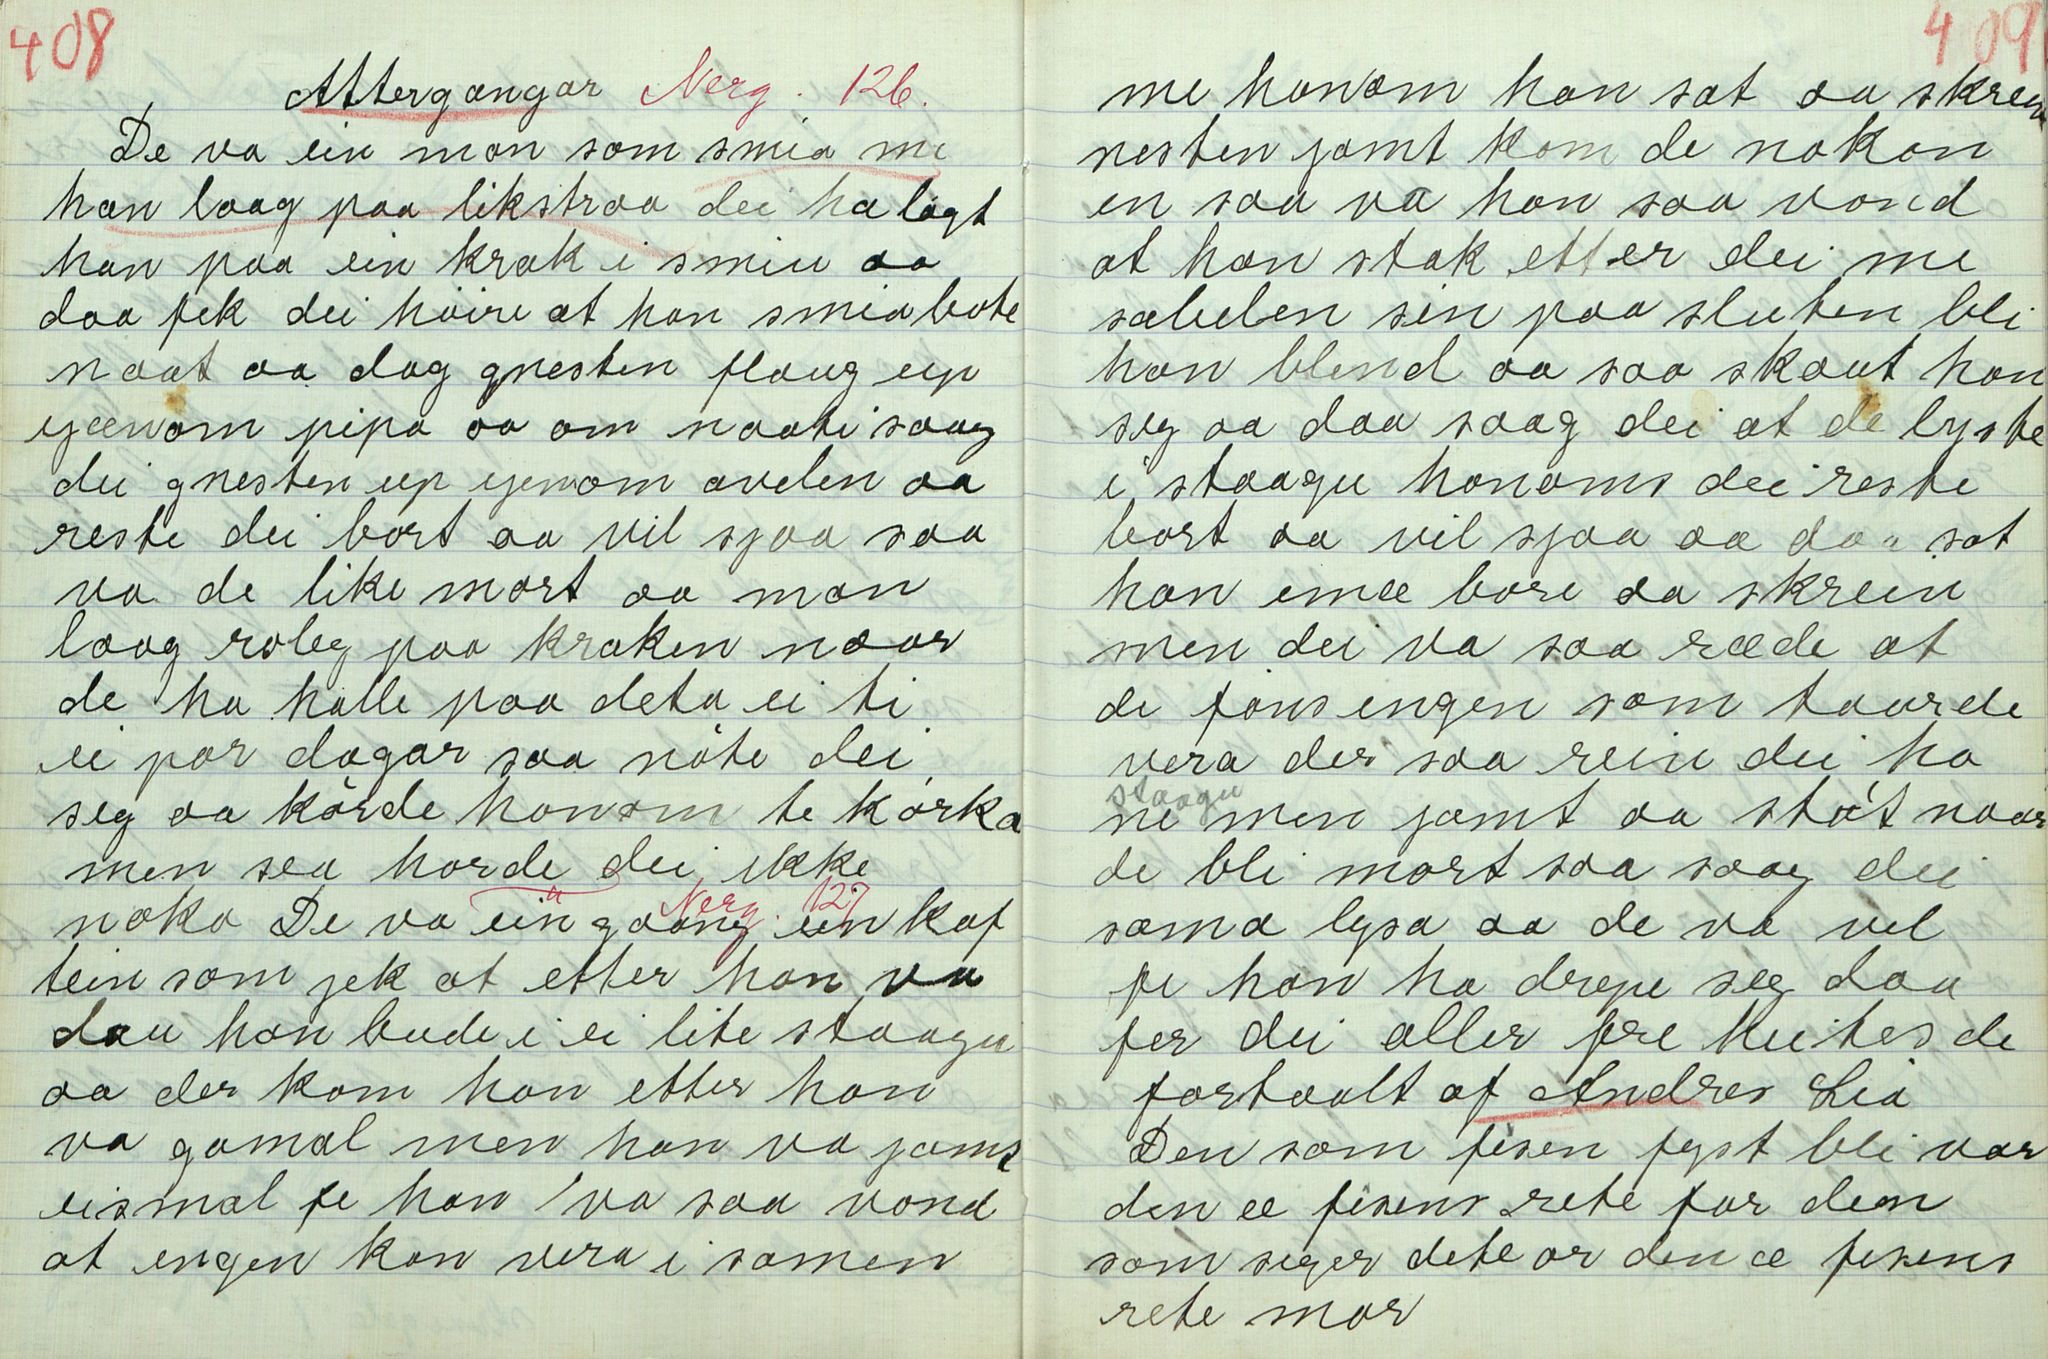 408
Attergangar Nerg. 126.
De va ein man som smia me
han laag paa likstraa dei ha lagt
han paa ein krak i smiu aa
daa fek dei höire at han smia bote
naat aa dag gnesten flaug up
gjenom pipa aa om naati saag
dei gnesten up gjenom avelen aa
reste dei bort aa vil sjaa saa
va de like mort aa man
laag roleg paa kraken naar
de ha halle paa deta ei ti
ei par dagar saa nöte dei
seg aa körde honom te körka
men sea horde dei ikke
noko De va ein gaang ein kap
Nerg. 127
tein som gek at etter han va
dau han bude i ei lite staagu
aa der kom han etter han
va gamal men han va jams
eismal fe han va saa vond
at engen kan vera i samen
409
me honom han sat aa skrein
nesten jamt kom de nokon
en saa va han saa vond
at han stak etter dei me
sabelen sin paa sluten bli
han blend aa saa skaut han
seg aa daa saag dei at de lyste
i staagu honoms dei reste
bort aa vil sjaa aa daa sat
han emæ bore aa skrein
men dei va saa ræde at
de fans engen som taarde
vera der saa rein dei ha
staagu
ne men jamt aa stöt naar
de bli mort saa saag dei
sama lysa aa de va vel
fe han ha drepe seg daa
fer dei aller fre huites de
fortaalt af Andres Lia
Den som fisen fyst bli var
den æ fisens rete far den
som siger dete ar den æ fisens
rete mor